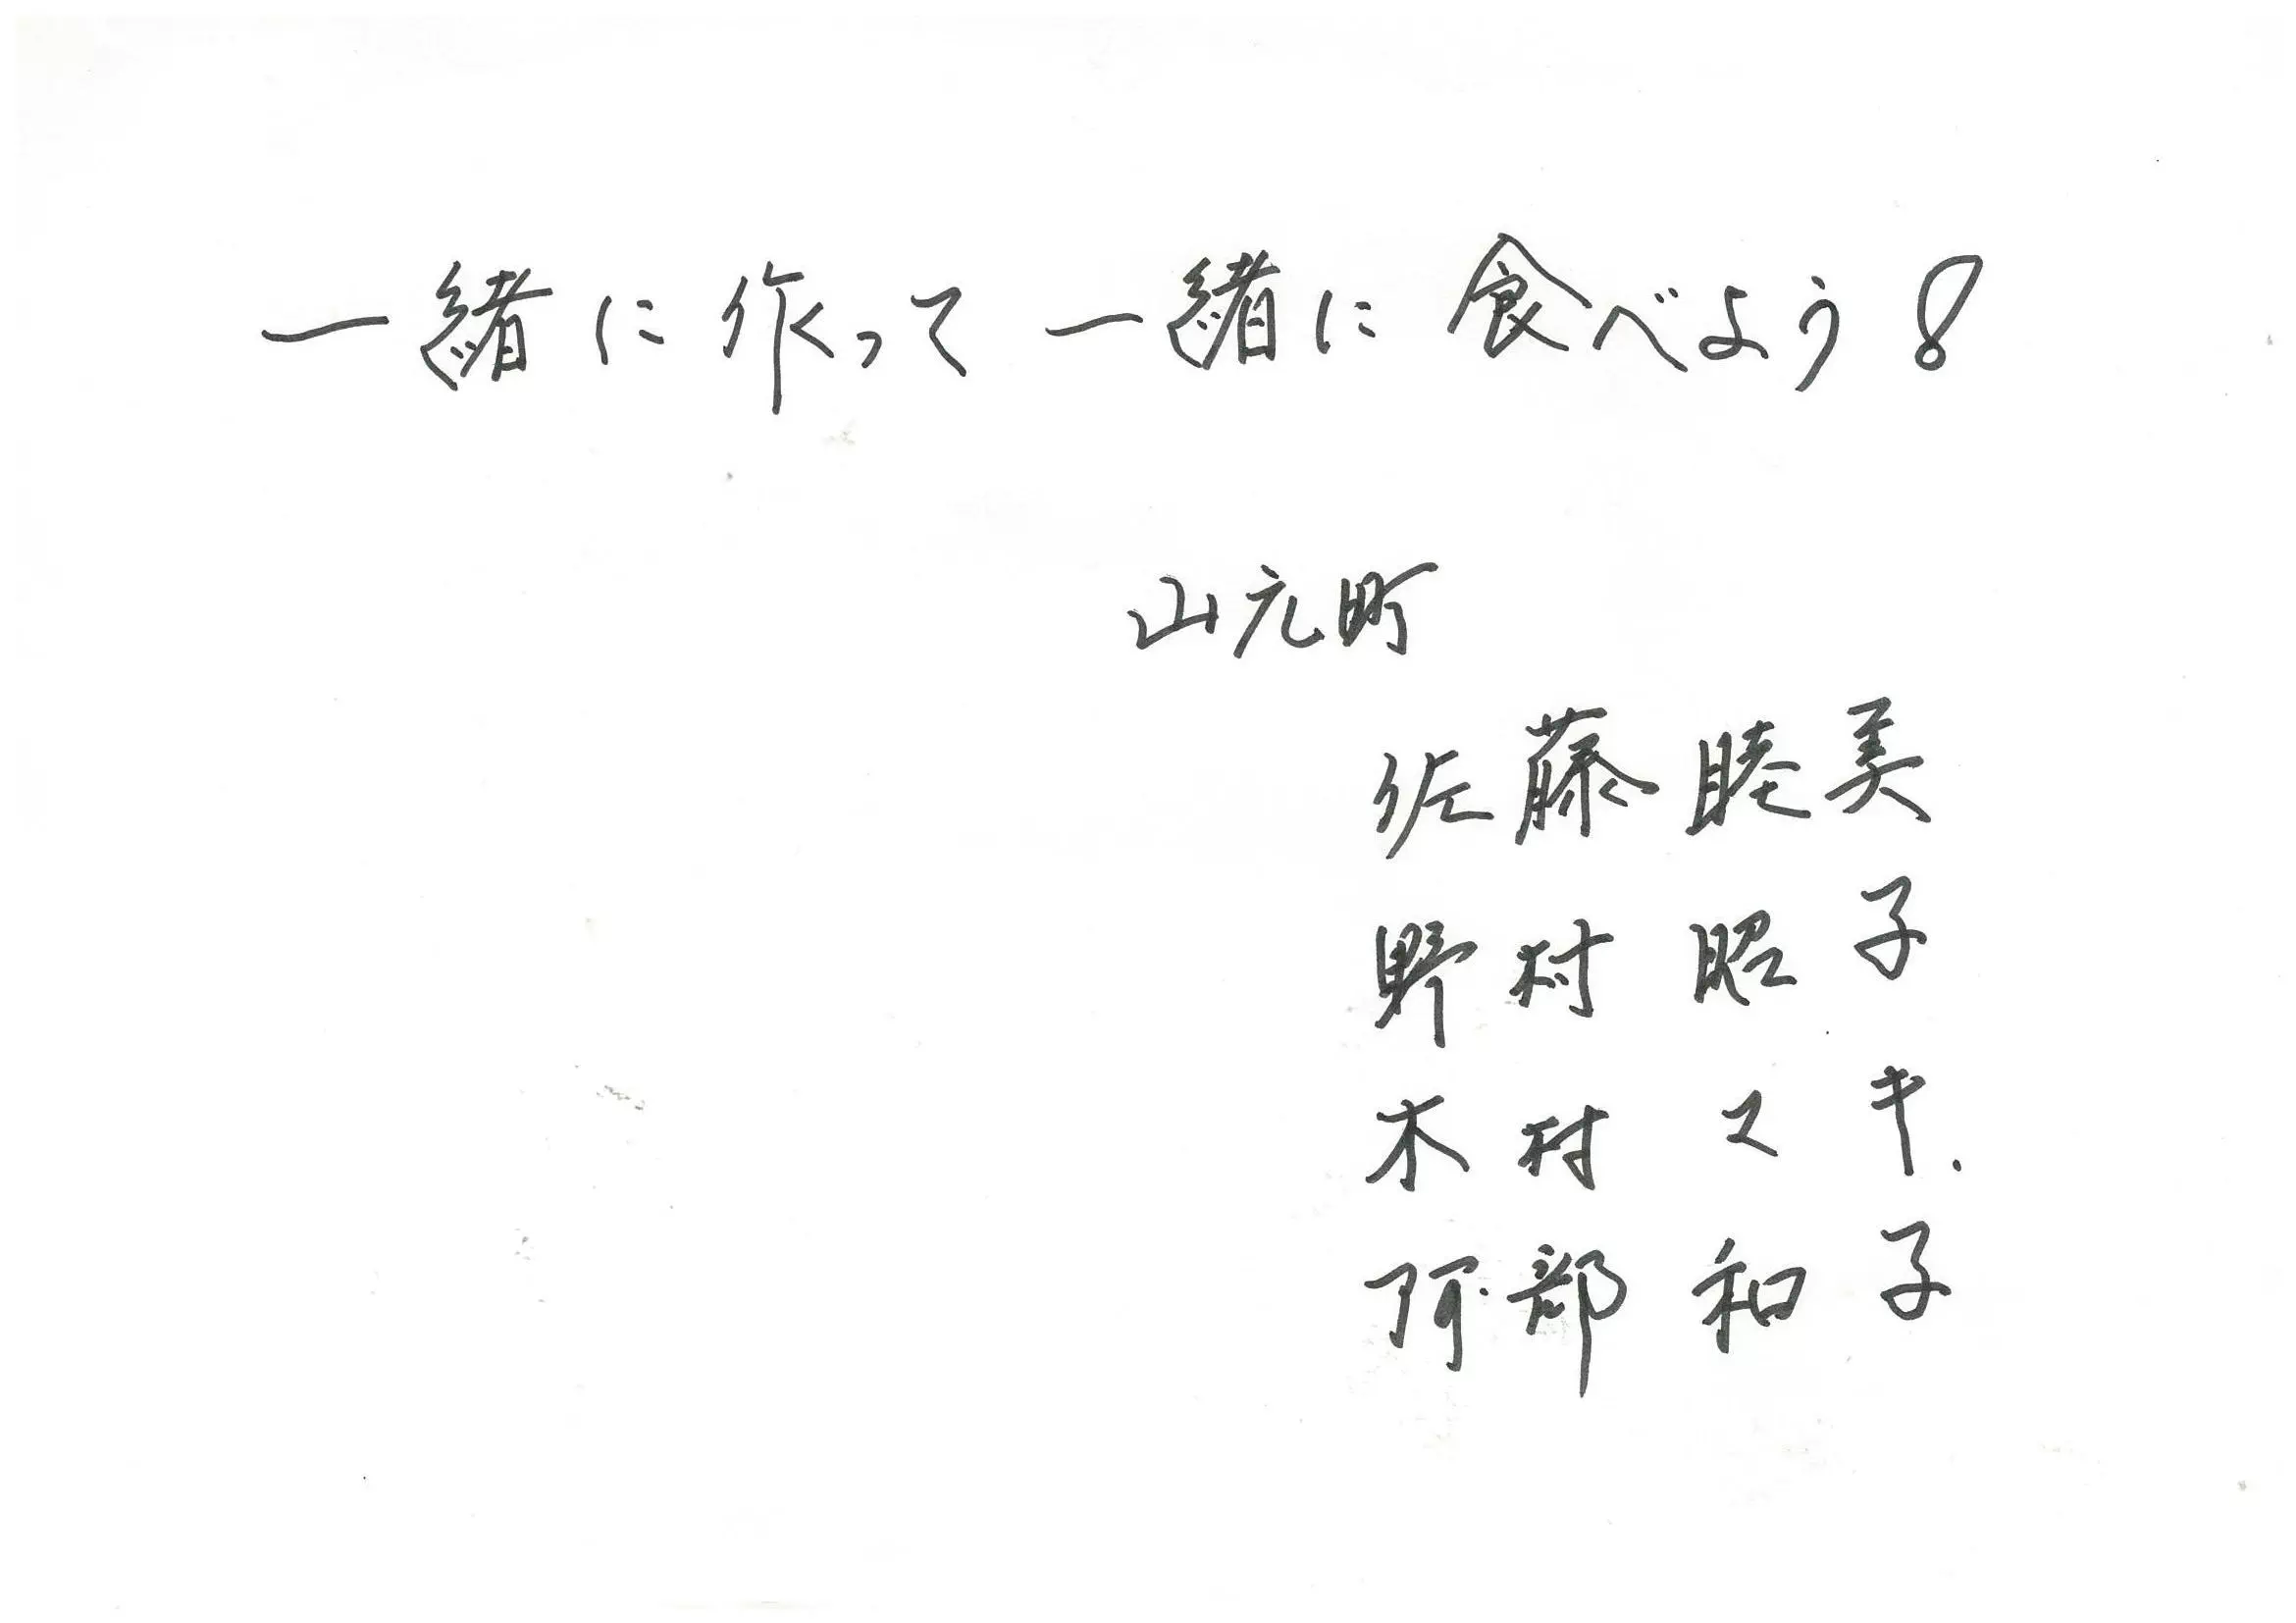 一緒に作って一緒に食べよう!
山元町
佐藤睦美
野村昭子
木村ユキ
阿部和子